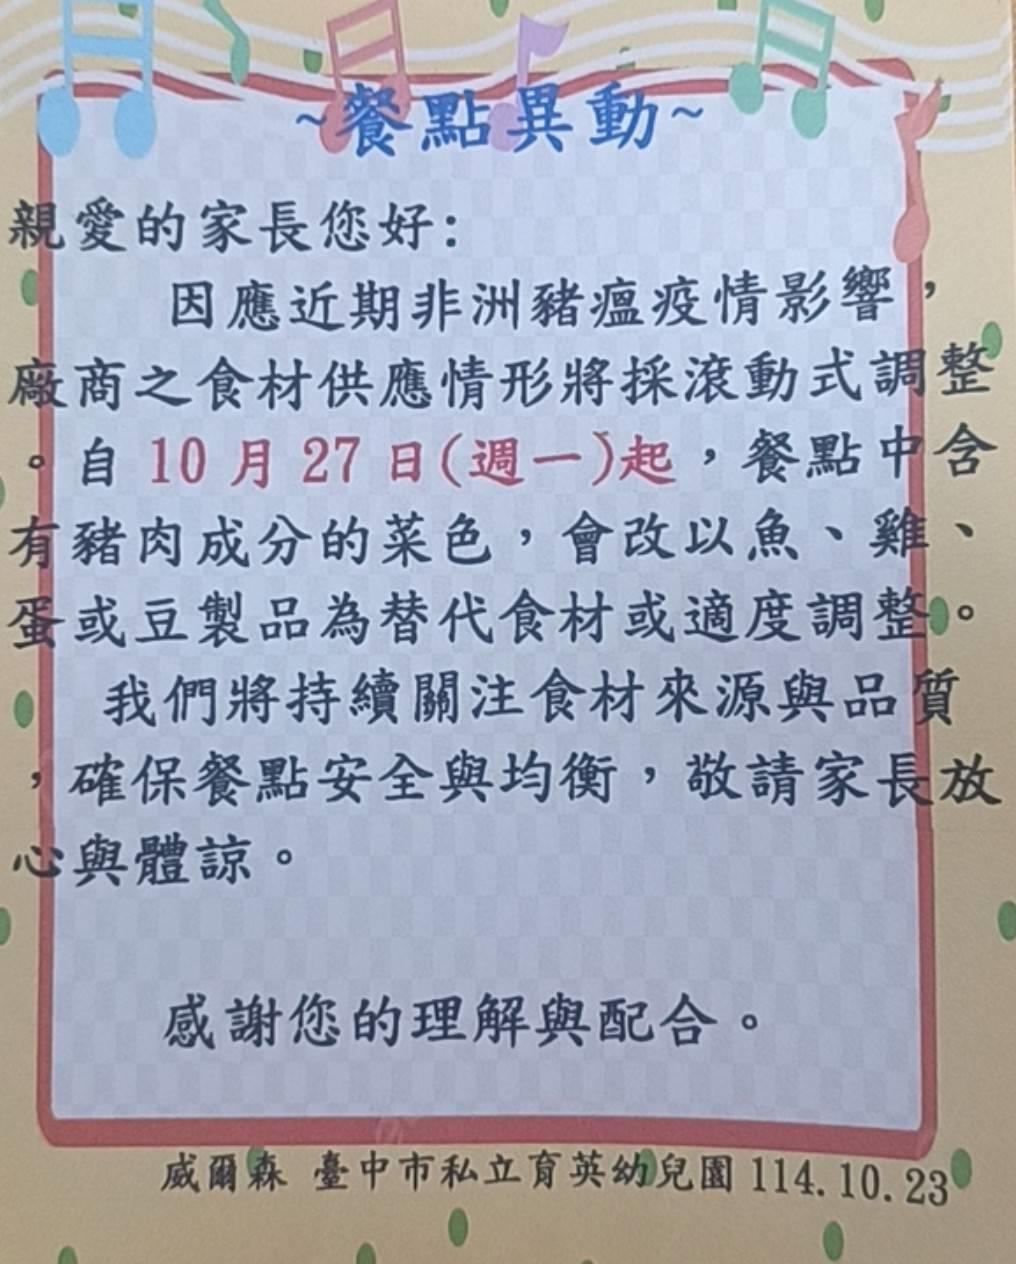 ~餐點異動~
親愛的家長您好:
因應近期非洲豬瘟疫情影響，
廠商之食材供應情形將採滾動式調整
。自10月27日(週一)起，餐點中含
有豬肉成分的菜色，會改以魚、雞、
蛋或豆製品為替代食材或適度調整。
我們將持續關注食材來源與品質
，確保餐點安全與均衡，敬請家長放
心與體諒。
感謝您的理解與配合。
威爾森 臺中市私立育英幼兒園 114.10.23